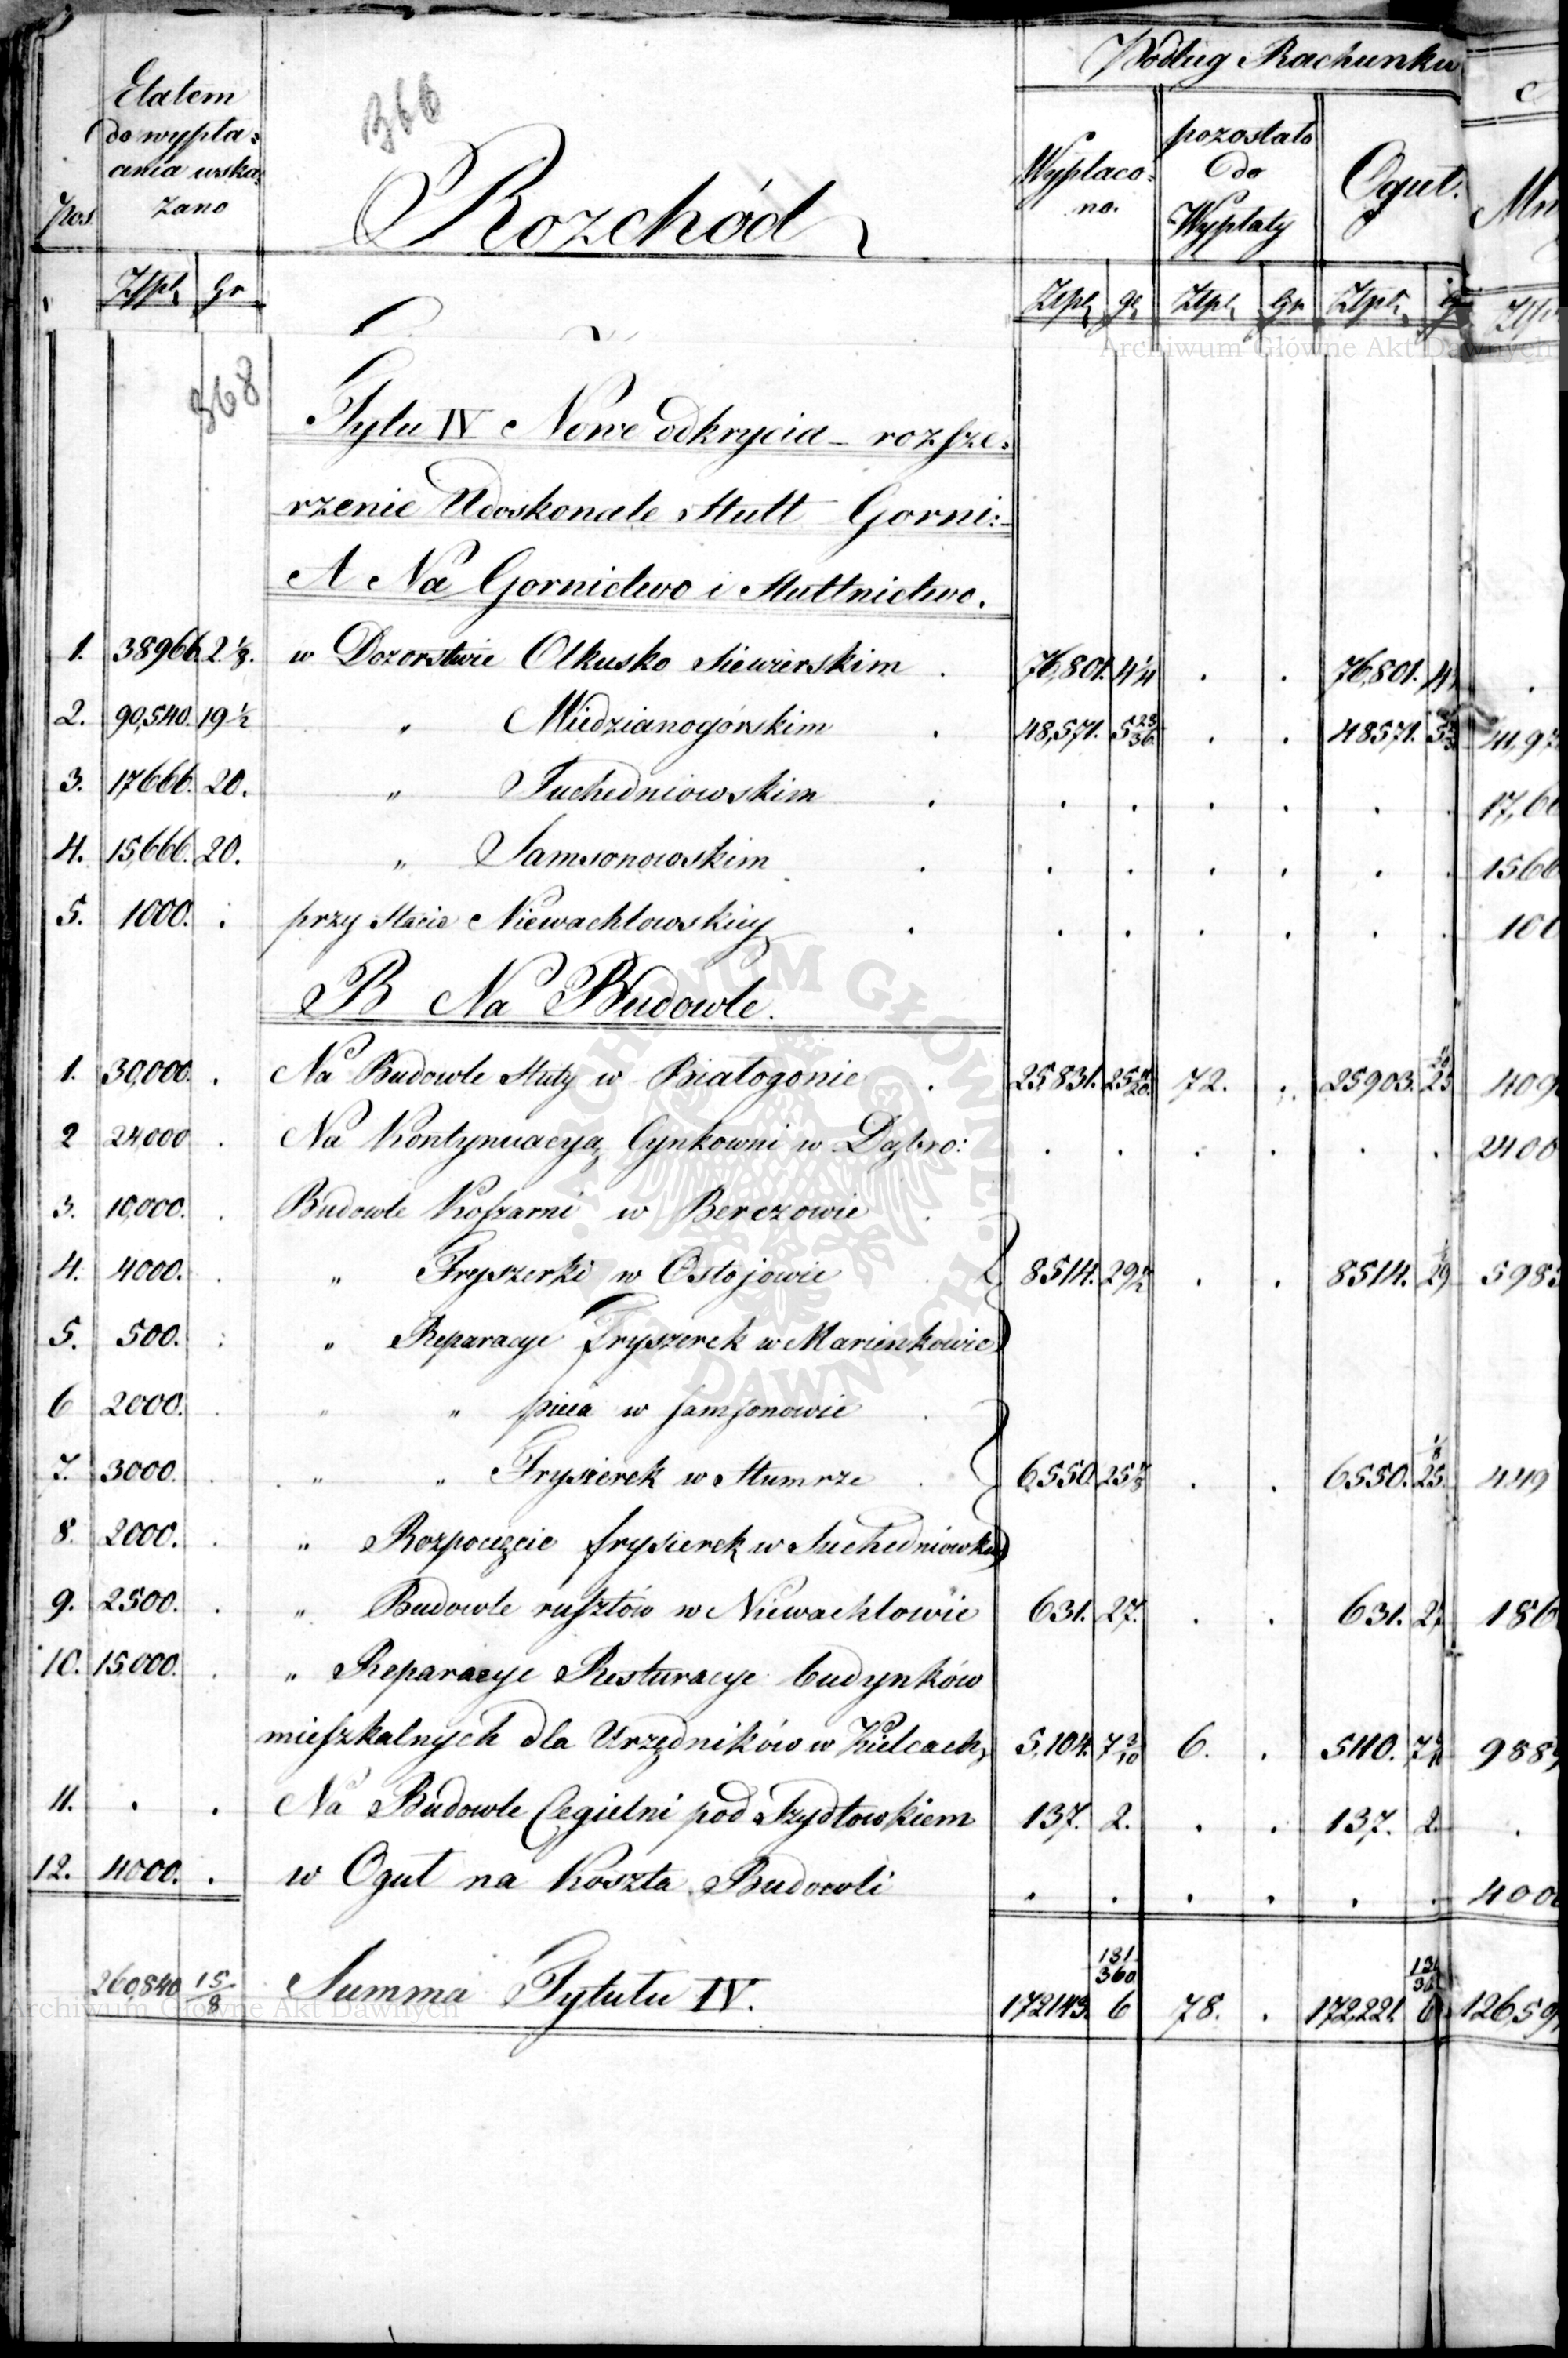 Podług Rachunku
Etatem
do wypła=
cenia wska=
zano
Pos
366
Rozchód
Wypłaco=
no.
pozostało
do
Wypłaty
Oguł.
Złpl. Gr
Złpl. gr Złpl. Gr Złpl.
Archiwum Główne Akt Dawnych
368
Tytu IV Nowe odkrycia – rozsze=
rzenie Udoskonale Hutt Gorni:
A Na Gornictwo i Huttnictwo.
1. 38966. 2 1/8. w Dozorstwie Olkusko Siewierskim . 76,801. 4 1/4 . . 76,801. 4
2. 90,540. 19 1/2 " Miedzianogórskim . 48,571. 5 23/36 . . 48571. 5 41,97
3. 17666. 20. " Suchedniowskim . . . . . . . 17,66
4. 15,666. 20. " Samsonowskim . . . . . . . 1566
5. 1000. . przy Hucie Niewachlowskiey . . . . . . . 100
B Na Budowle.
1. 30,000. . Na Budowle Huty w Białogonie . 25,831. 25 11/20 72. . 25903. 25 409
2 24,000 . Na Kontynuacyą Cynkowni w Dąbro: . . . . . . 2400
3. 10,000. . Budowle Koszarni w Berezowie .
4. 4000. . " Fryszerki w Ostojowie 8514. 29 1/2 . . 8514. 29 5983
5. 500. : " Reparacye Fryszerek w Marienkowie
6 2000. . " " pieca w Samsonowie .
7. 3000. . " " Fryszerek w Humrze . 6,550. 25 1/8 . . 6550. 25. 449
8. 2000. . " Rozpoczęcie fryszerek w Suchedniowku
9. 2500. . " Budowle rusztów w Niewachlowie 631. 27. . . 631. 27 186
10. 15.000. . " Reparacye Resturacye budynków
mieszkalnych dla Urzędników w Kielcach 5,104. 7 3/10 6. . 5110. 7 988
11. . . Na Budowle Cegielni pod Szydłowkiem 137. 2. . . 137. 2. .
12. 4000. . w Oguł na Koszta Budowli . . . . . . 400
260,840 15/8 Summa Tytułu IV. 172143. 6 131/360 78. . 172,221. 6 126,59
Archiwum Główne Akt Dawnych
ARCHIWUM GŁÓWNE AKT DAWNYCH